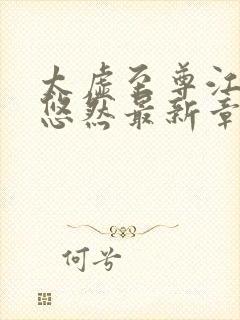 太虚至尊江
悠然最新章
何兮